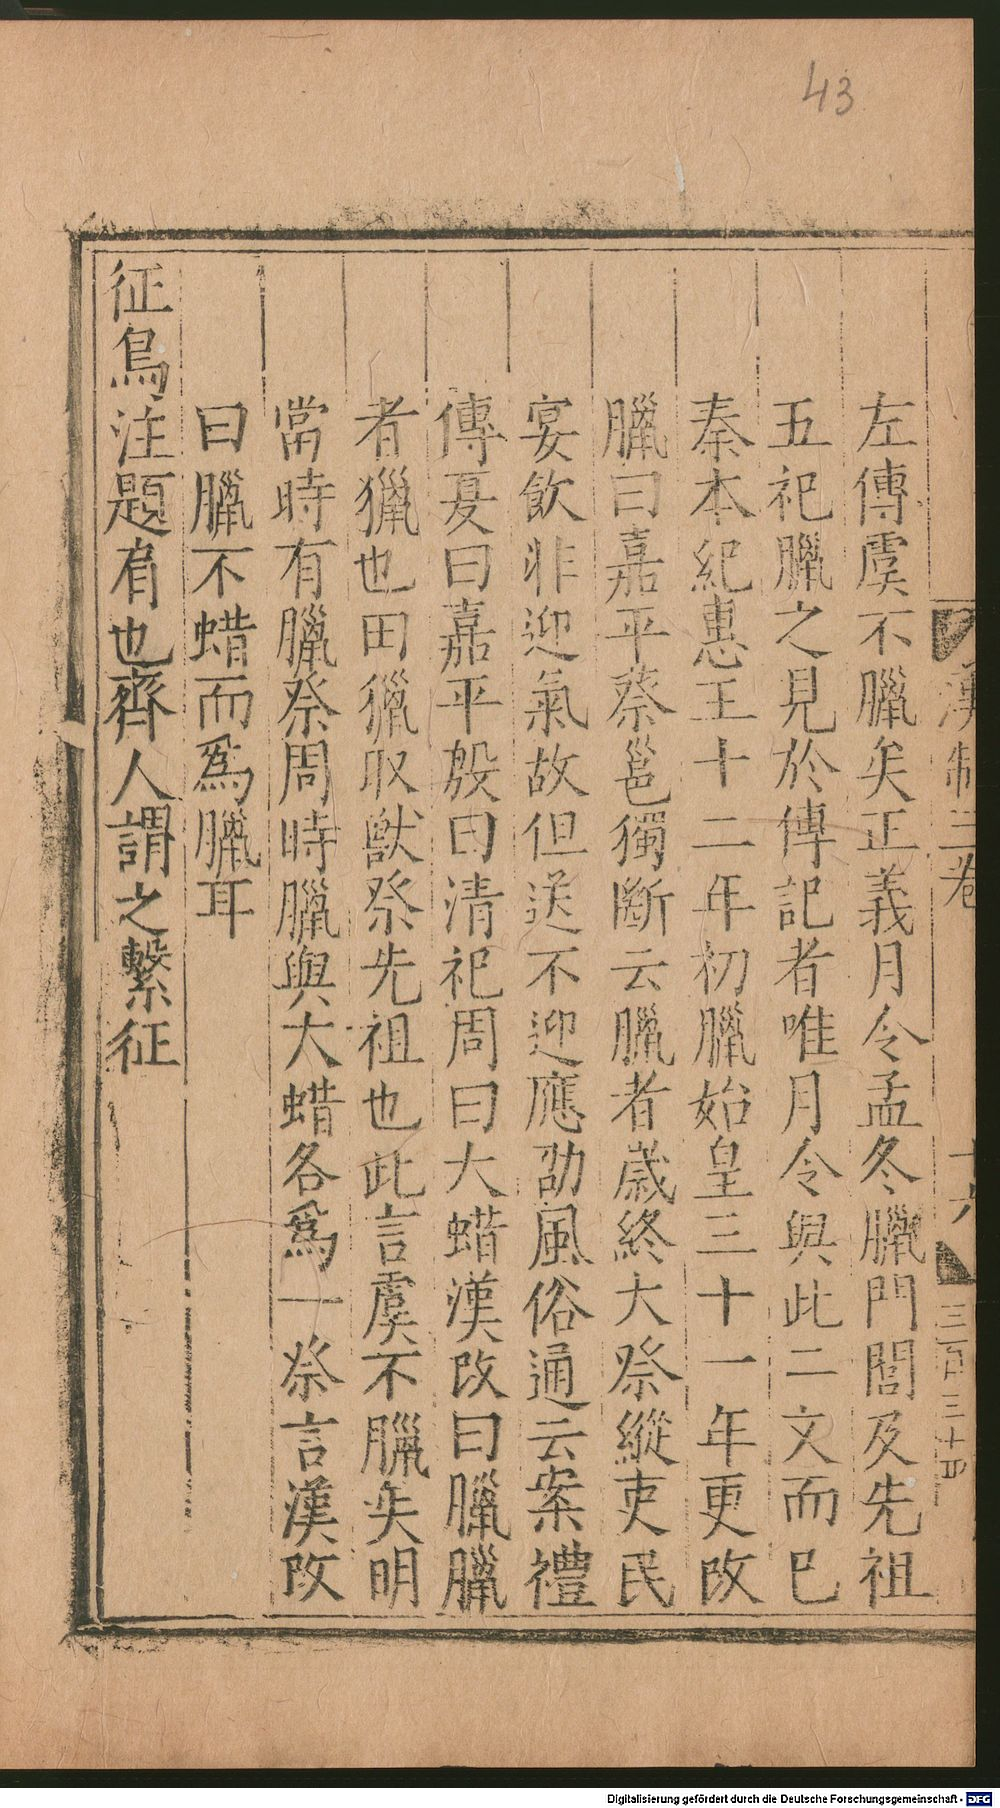 43
漢制三卷
十六
三百三十四
左傳虞不臘矣正義月令孟冬臘門閭及先祖
五祀臘之見於傳記者唯月令與此二文而已
秦本紀惠王十二年初臘始皇三十一年更改
臘曰嘉平蔡邕獨斷云臘者歲終大祭縱吏民
宴飲非迎氣故但送不迎應劭風俗通云案禮
傳夏曰嘉平殷曰清祀周曰大蜡漢改曰臘臘
者獵也田獵取獸祭先祖也此言虞不臘矣明
當時有臘祭周時臘與大蜡各爲一祭言漢改
曰臘不蜡而爲臘耳
征鳥注題肩也齊人謂之繫征
Digitalisierung gefördert durch die Deutsche Forschungsgemeinschaft - DFG